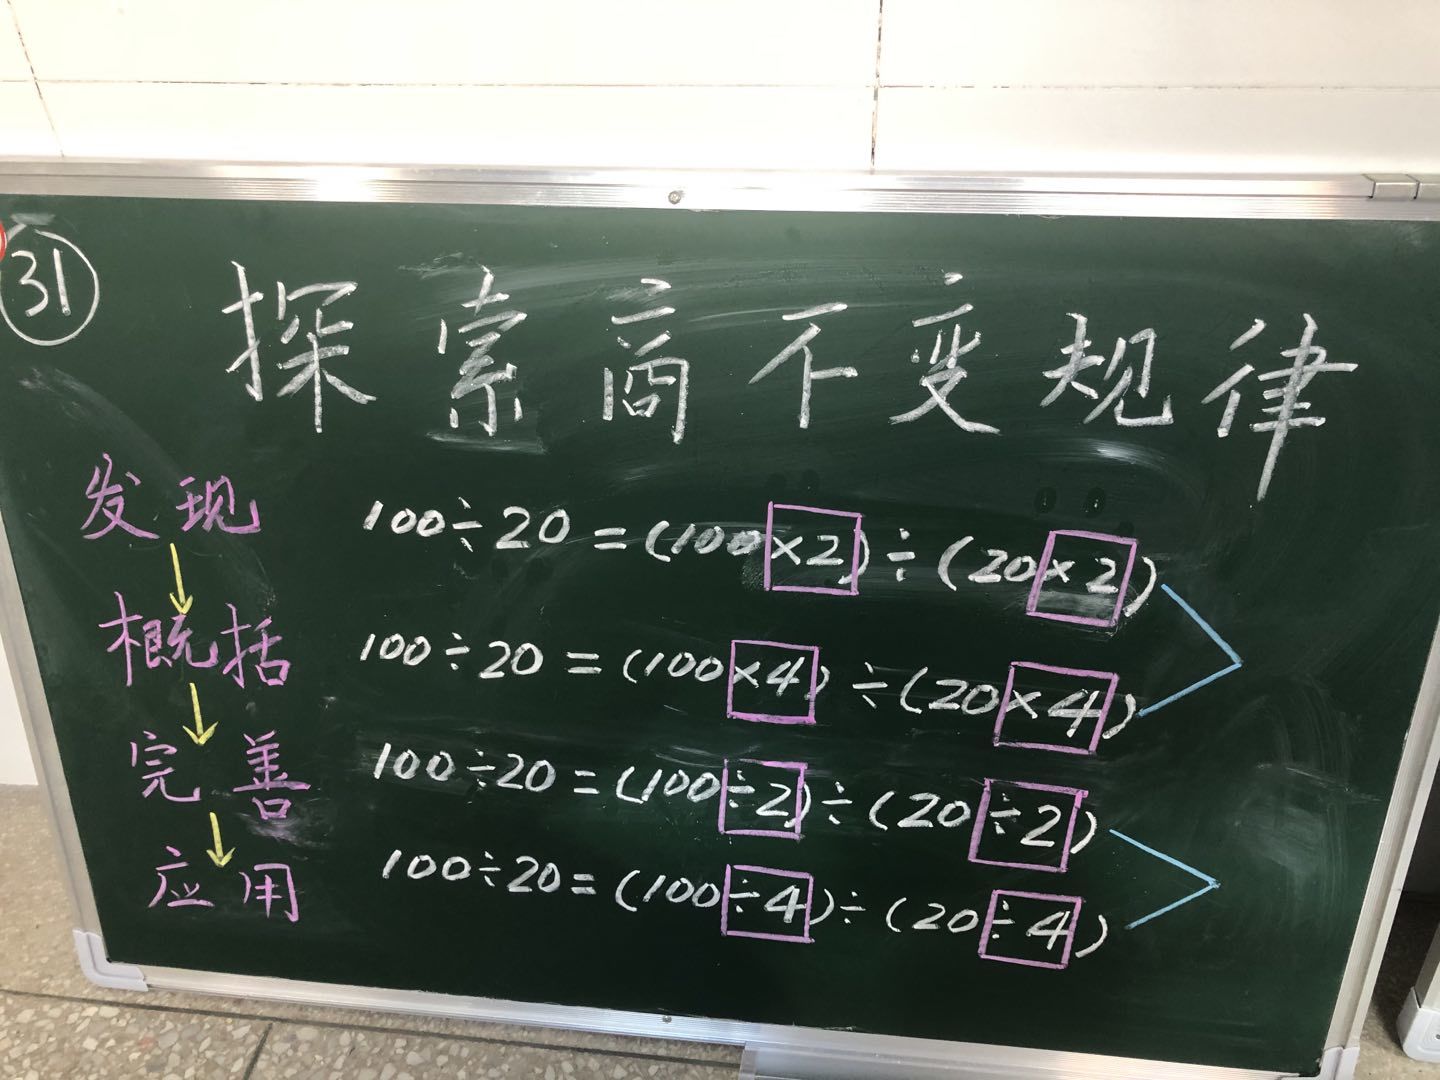 31
探索商不变规律
发现
100÷20=(100×2)÷(20×2)
概括
100÷20=(100×4)÷(20×4)
完善
100÷20=(100÷2)÷(20÷2)
应用
100÷20=(100÷4)÷(20÷4)